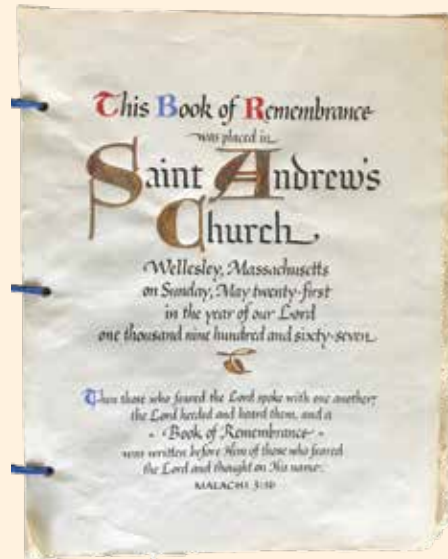 This Book of Remembrance
was placed in
Saint Andrew's
Church
Wellesley, Massachusetts
on Sunday, May twenty-first
in the year of our Lord
one thousand nine hundred and sixty-seven
Then those who feared the Lord spoke with one another;
the Lord heeded and heard them, and a
- Book of Remembrance -
was written before Him of those who feared
the Lord and thought on His name.
MALACHI 3:16